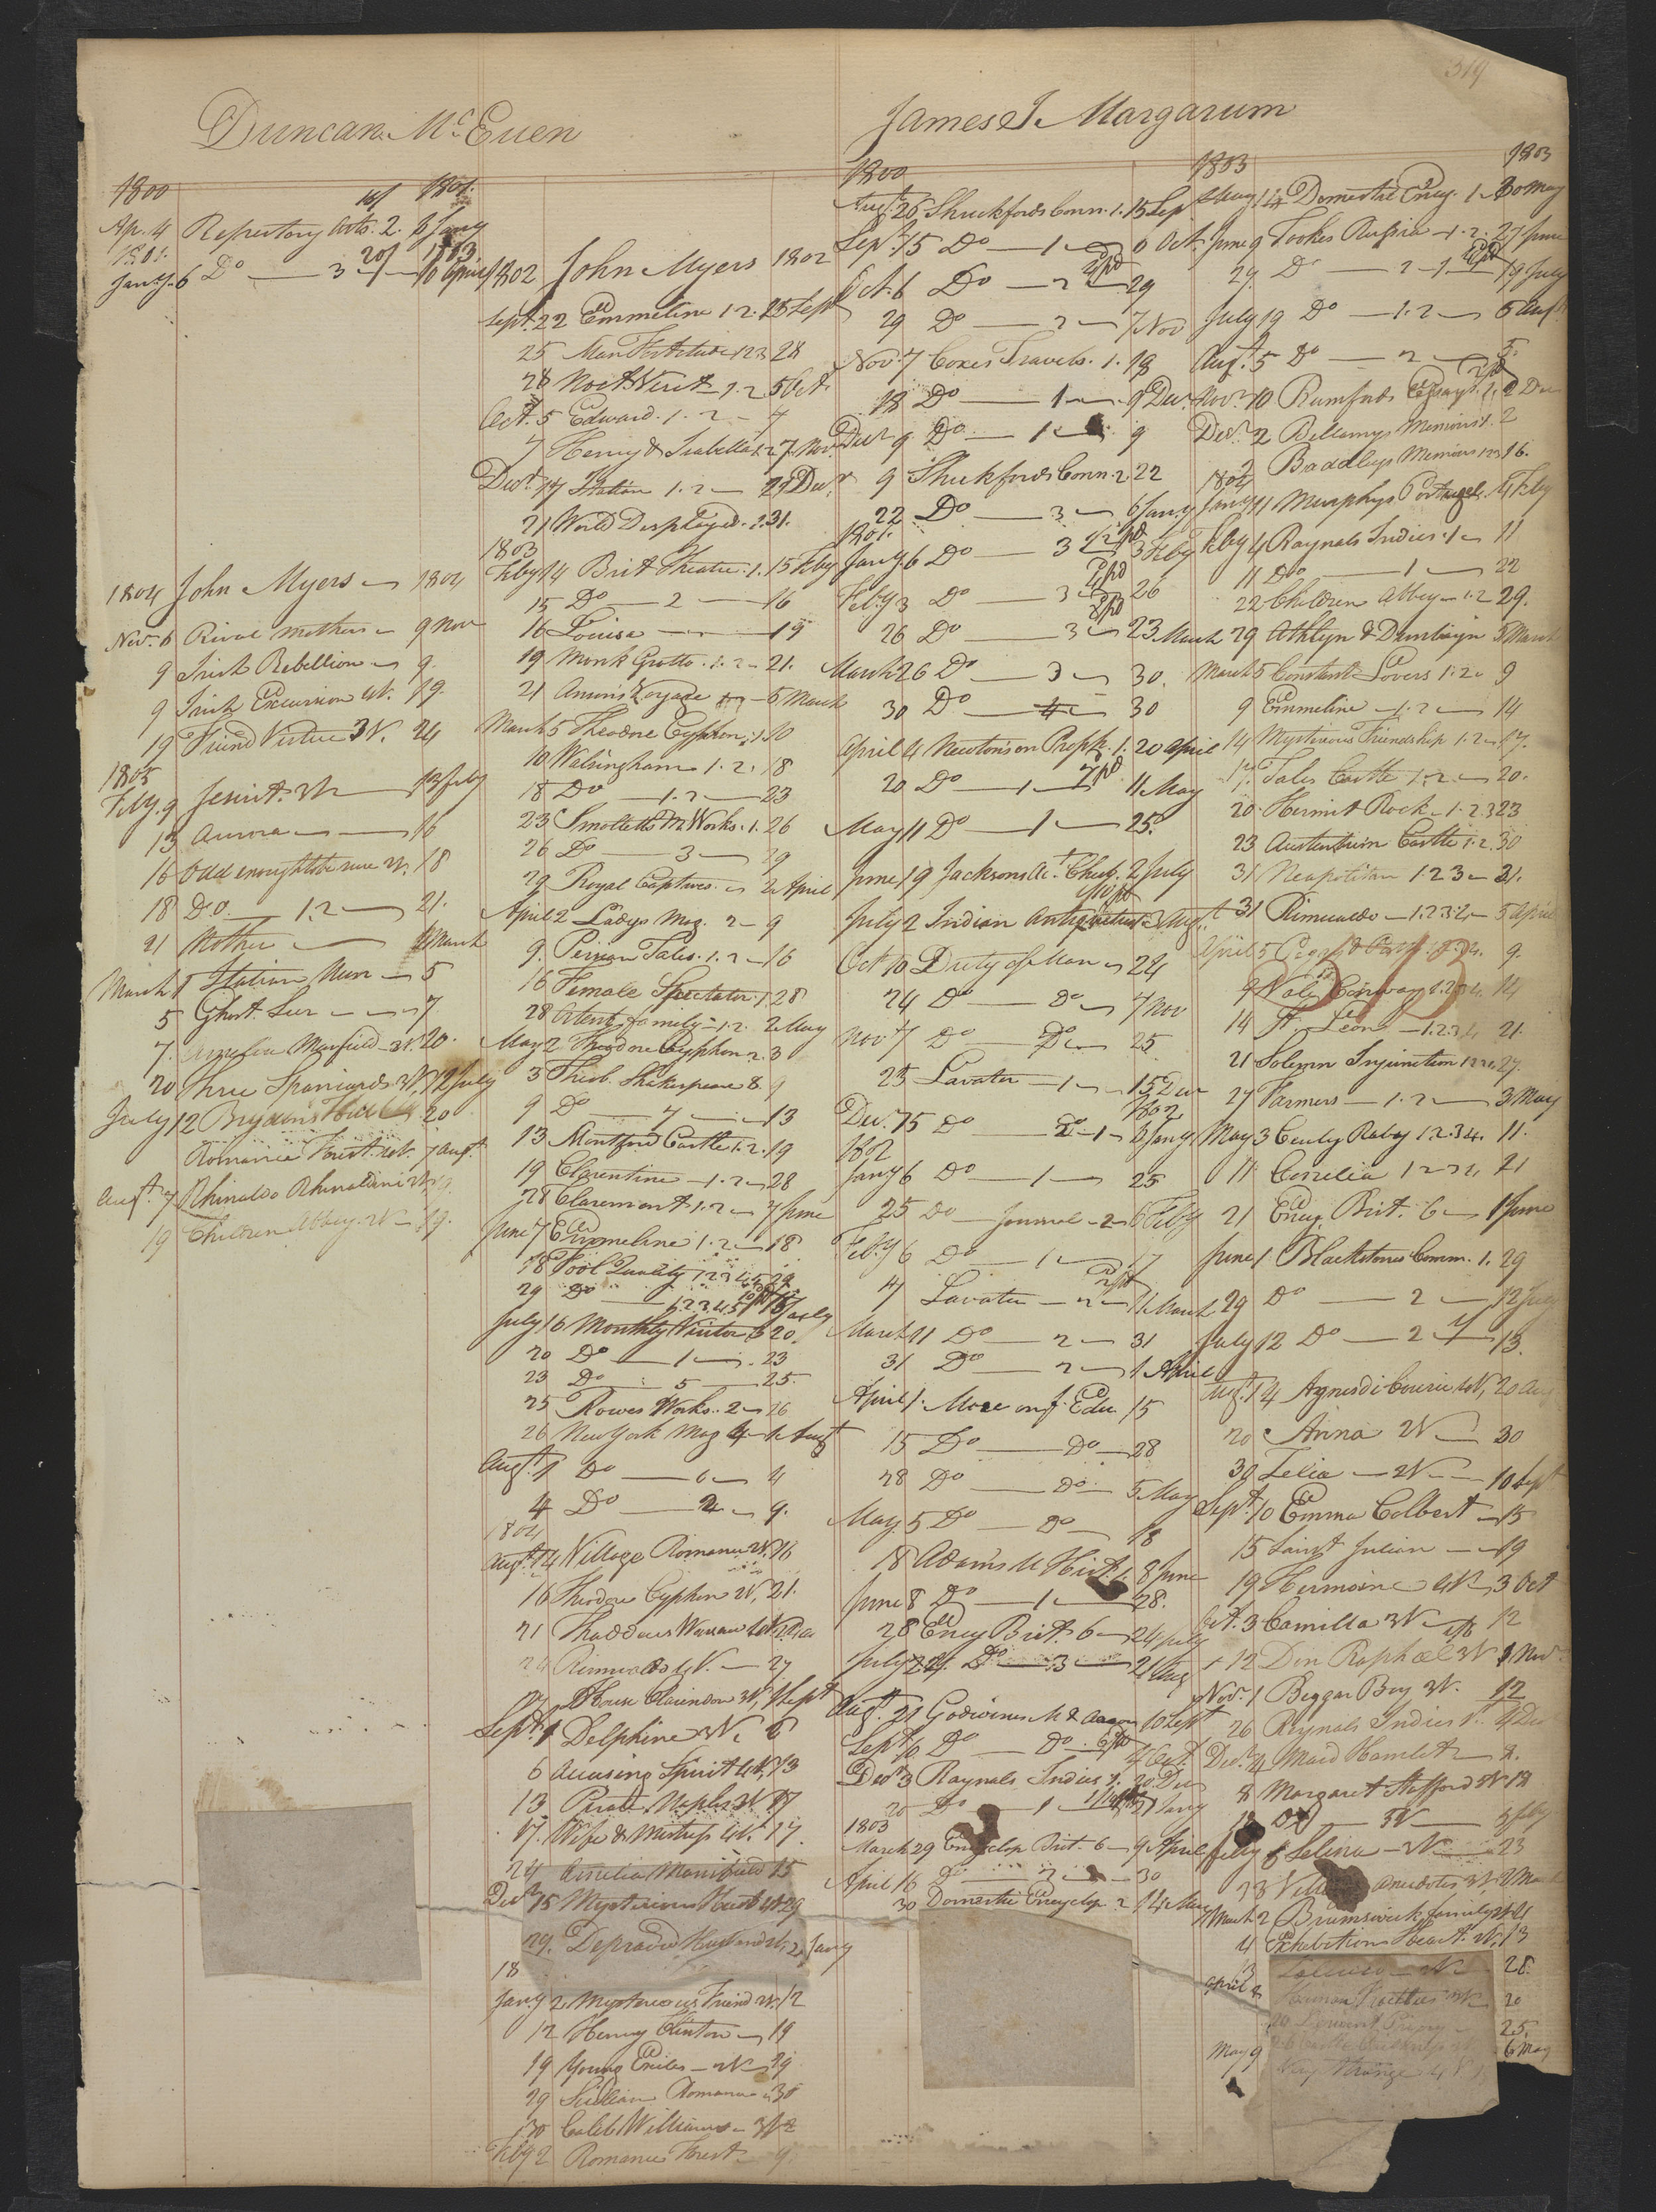 319
Duncan McEuen
1800 16/ 1801.
Ap. 4 Repertory Arts. 2. 6 Jany
1801. 20/ 1803
Jany. 6 Do — 3 — 10 April
1804 John Myers — 1804
Nov. 6 Rival Mothers — 9 Nov
9 Irish Rebellion — 9.
9 Irish Excursion 4V. 19.
19 Friend Virtue 3V. 24
1805
Feby. 9 Jesuit. 2V — 13 feby
13 Aurora — 16
16 Odd enough to be sure 2V. 18
18 Do. — 1.2 — 21.
21 Mother — 1 March
March 1 Italian Nun — 5
5 Ghost. Seer — 7
7. Amelia Manfield 3V. 20.
20 Three Spaniards 2V. 12 July
July 12 20
Romance Forest. 2V. 7 Augt.
Augt. 7 Rhinaldo Rhinaldini 2V 19.
19 Children Abbey. 2V — 19.
1802 John Myers 1802
Sept. 22 Emmeline 1 2. 25 Sept
25 Man Fortitude 1 2 3 28
28 Noct Visit — 1.2. 5 Oct
Oct. 5 Edward. 1. 2 — 7
7 Henry & Isabella 1.2 7 Nov.
Decr. 17 Italian 1. 2 — 21 Decr.
21 World Desplayed. 2. 31.
1803
Feby 14 Brit Theatre. 1. 15 Feby
15 Do — 2 — 16
16 Louisa — 19
19 Monk Grotto. 1. 2 — 21.
21 Ansons Voyage — 5 March
March 5 Theodore Cyphon. 1. 10
10 Walsingham 1. 2. 18
18 Do — 1. 2 — 23
23 Smolletts M. Works. 1. 26
26 Do — 3 — 29
29 Royal Captives — 2 April
April 2 Ladys Mag. 2 — 9
9. Persian Tales. 1. 2 — 16
16 Female Spectator. 1 28
28 family — 1. 2. 2 May
May 2 Theodore Cyphon. 2. 3
3 Theob. Shakespeare 8. 9
9 Do — 7 — 13
13 Montford Castle 1. 2. 19
19 Clarentine — 1. 2 — 28
28 Claremont. 1. 2 — 7 June
June 7 Emmeline 1. 2 — 18
18 Fool Quality 1 2 3 4 5 29
29 Do — 1.2.3.4.5 15 July
July 16 Monthly Visitor 3 20.
20 Do — 1 — 23
23 Do — 5 — 25.
25 Rowes Works. 2 — 26
26 New York Mag 4 — 1 Augt
Augt. 1 Do — 4
4 Do — 2 — 9.
1804
Augt. 14 Village Romance 2V. 16
16 Theodore Cyphon 2V, 21.
21 Thaddeus Warsaw 4V
24 Rimualdo 4V. — 27
27 House Clarendon 3V, 1 Sept
Sept. 1 Delphine 3V. 6
6 Accusing Spirit 4V. 13
13 Pirate Naples 3V 17
17. Wife & Mistress 4V. 17.
24 Amelia Mansfield 15
Decr 15 Mysterious Husb 4V 29
29. Depraved Husband 2V, 2 Jany
18
Jany 2 Mysterious Friend 2V. 12
12 Henry Clinton — 19
19 Young Exiles — 2V — 29
29 Sicilian Romance 30
30 Caleb Williams — 3V 2
Feby 2 Romance Forest — 9
James J. Margarum
1800
Augt. 26 Shuckfords Conn. 1. 15 Sep
Sep. 15 Do — 1 — 6 Oct
Oct. 6 Do — 2 — 29
29 Do — 2 — 7 Nov
Nov. 7 Coxes Travels. 1. 18
18 Do — 1 — 9 Decr.
Decr 9 Do — 1 — 9
9 Shuckfords Conn. 2 22
22 Do — 3 — 6 Jany
1801.
Jany 6 Do — 3 3 Feby
Feby 3 Do — 3 26
26 Do — 3 — 23 March
March 26 Do — 3 — 30.
30 Do — 4 — 30
April 4 Newton on Proph. 1. 20 April
20 Do — 1 — 11 May
May 11 Do — 1 — 25.
June 19 Jacksons Ac. Chuf. 2 July
July 2 Indian Antiquities 3 Augt.
Oct 10 Duty of Man — 24
24 Do — Do — 7 Nov
Nov 7 Do — Do — 25
25 Lavater — 1 — 15 Decr
Dec. 15 Do — Do 1 — 6 Jany 1802
1802
Jany 6 Do — 1 — 25
25 Do — Journal — 2 — 6 Feby
Feby 6 Do — 1 — 17
17 Lavater — 2 — 11 March
March 11 Do — 2 — 31
31 Do — 2 — 1 April
April 1. More on f. Edu. 15
15 Do — Do — 28
28 Do — Do — 5 May
May 5 Do — Do — 18
18 Adams U Hist. 1. 8 June
June 8 Do — 1 — 28.
28 Ency Brit. 6 — 24 July
July 24. Do — 3 — 21 Aug
Augt. 21 Godwines M & 10 Sept
Sept 10 Do — Do. 4 Oct
Decr 3 Raynals Indies 1. 20 Dec
20 Do — 1 21 Jany
1803
March 29 Encyclop Brit. 6 — 9 April
April 16 Do — 7 — 30
30 Domestic Encyclop. 2 14 May
1803 1803
May 14 Domestic Ency. 1. 30 May
June 9 Tookes Russia — 1. 2. 27 June
27. Do — 2 — 19 July
July 19 Do — 1. 2 — 5 Augt
Augt. 5 Do — 2 — 5.
Novr. 10 Rumfords Essays. 1. 2 Dec
Decr. 2 Bellamys Memoirs 1. 2
2 Baddleys Memoirs 1 2 3 16.
1804
Jany 11 Murphys Portugal. 4 Feby
Feby 4 Raynals Indies. 1 — 11
11 Do — 1 — 22
22 Children Abbey — 1. 2 29.
29 Athlyn & Dunbayn 5 March
March 5 Constant Lovers 1. 2 — 9
9 Emmeline — 1. 2 — 14
14 Mysterious Friendship 1. 2 — 17.
17. Tales Castle 1. 2 — 20.
20. Hermit Rock. 1. 2. 3 23
23 Austenburn Castle 1. 2. 30
31 Neapolitan 1. 2 3 — 31.
31 Rimualdo — 1. 2 3 4 — 5 April
April 5 9.
9 14
14 St. Leon — 1.2.3.4 21.
21 Solemn Injunction 1 2 3 4 27.
27 Farmers — 1. 2 — 3 May
May 3 Cecily Raby 1. 2. 3 4. 11.
11 Corelia 1 2 3 4 21
21 Ency. Brit. 6 — 1 June
June 1. Blackstones Comm. 1. 29
29 Do — 2 — 12 July
July 12 Do — 2 13.
Augt. 14 Agnes di Courci 4V, 20 Aug
20 Anna 2V — 30
30 Lelia — 2V — 10 Sept
Sept. 10 Emma Colbert — 15
15 Saint Julian — 19
19 Hermoine 4V — 3 Oct
Oct. 3 Camilla 3V — 12
12 Don Raphael 3V 1 Nov
Nov. 1 Beggar Boy 3V. 12
26 Raynals Indies 1. 4 Dec
Decr. 4 Maid Hamlet — 8.
8 Margaret Stafford 3V 18
Do — 3V — feby
feby 5 Selina — V — 23
anecdotes 3V 2 March
March 2 Brunswick family 2V 4
4 Exhibitions Heart. 2V, 13
13 28.
April 8 20
20 Derwent Priory — 25.
26 Castle
May 9 Strange 6 May